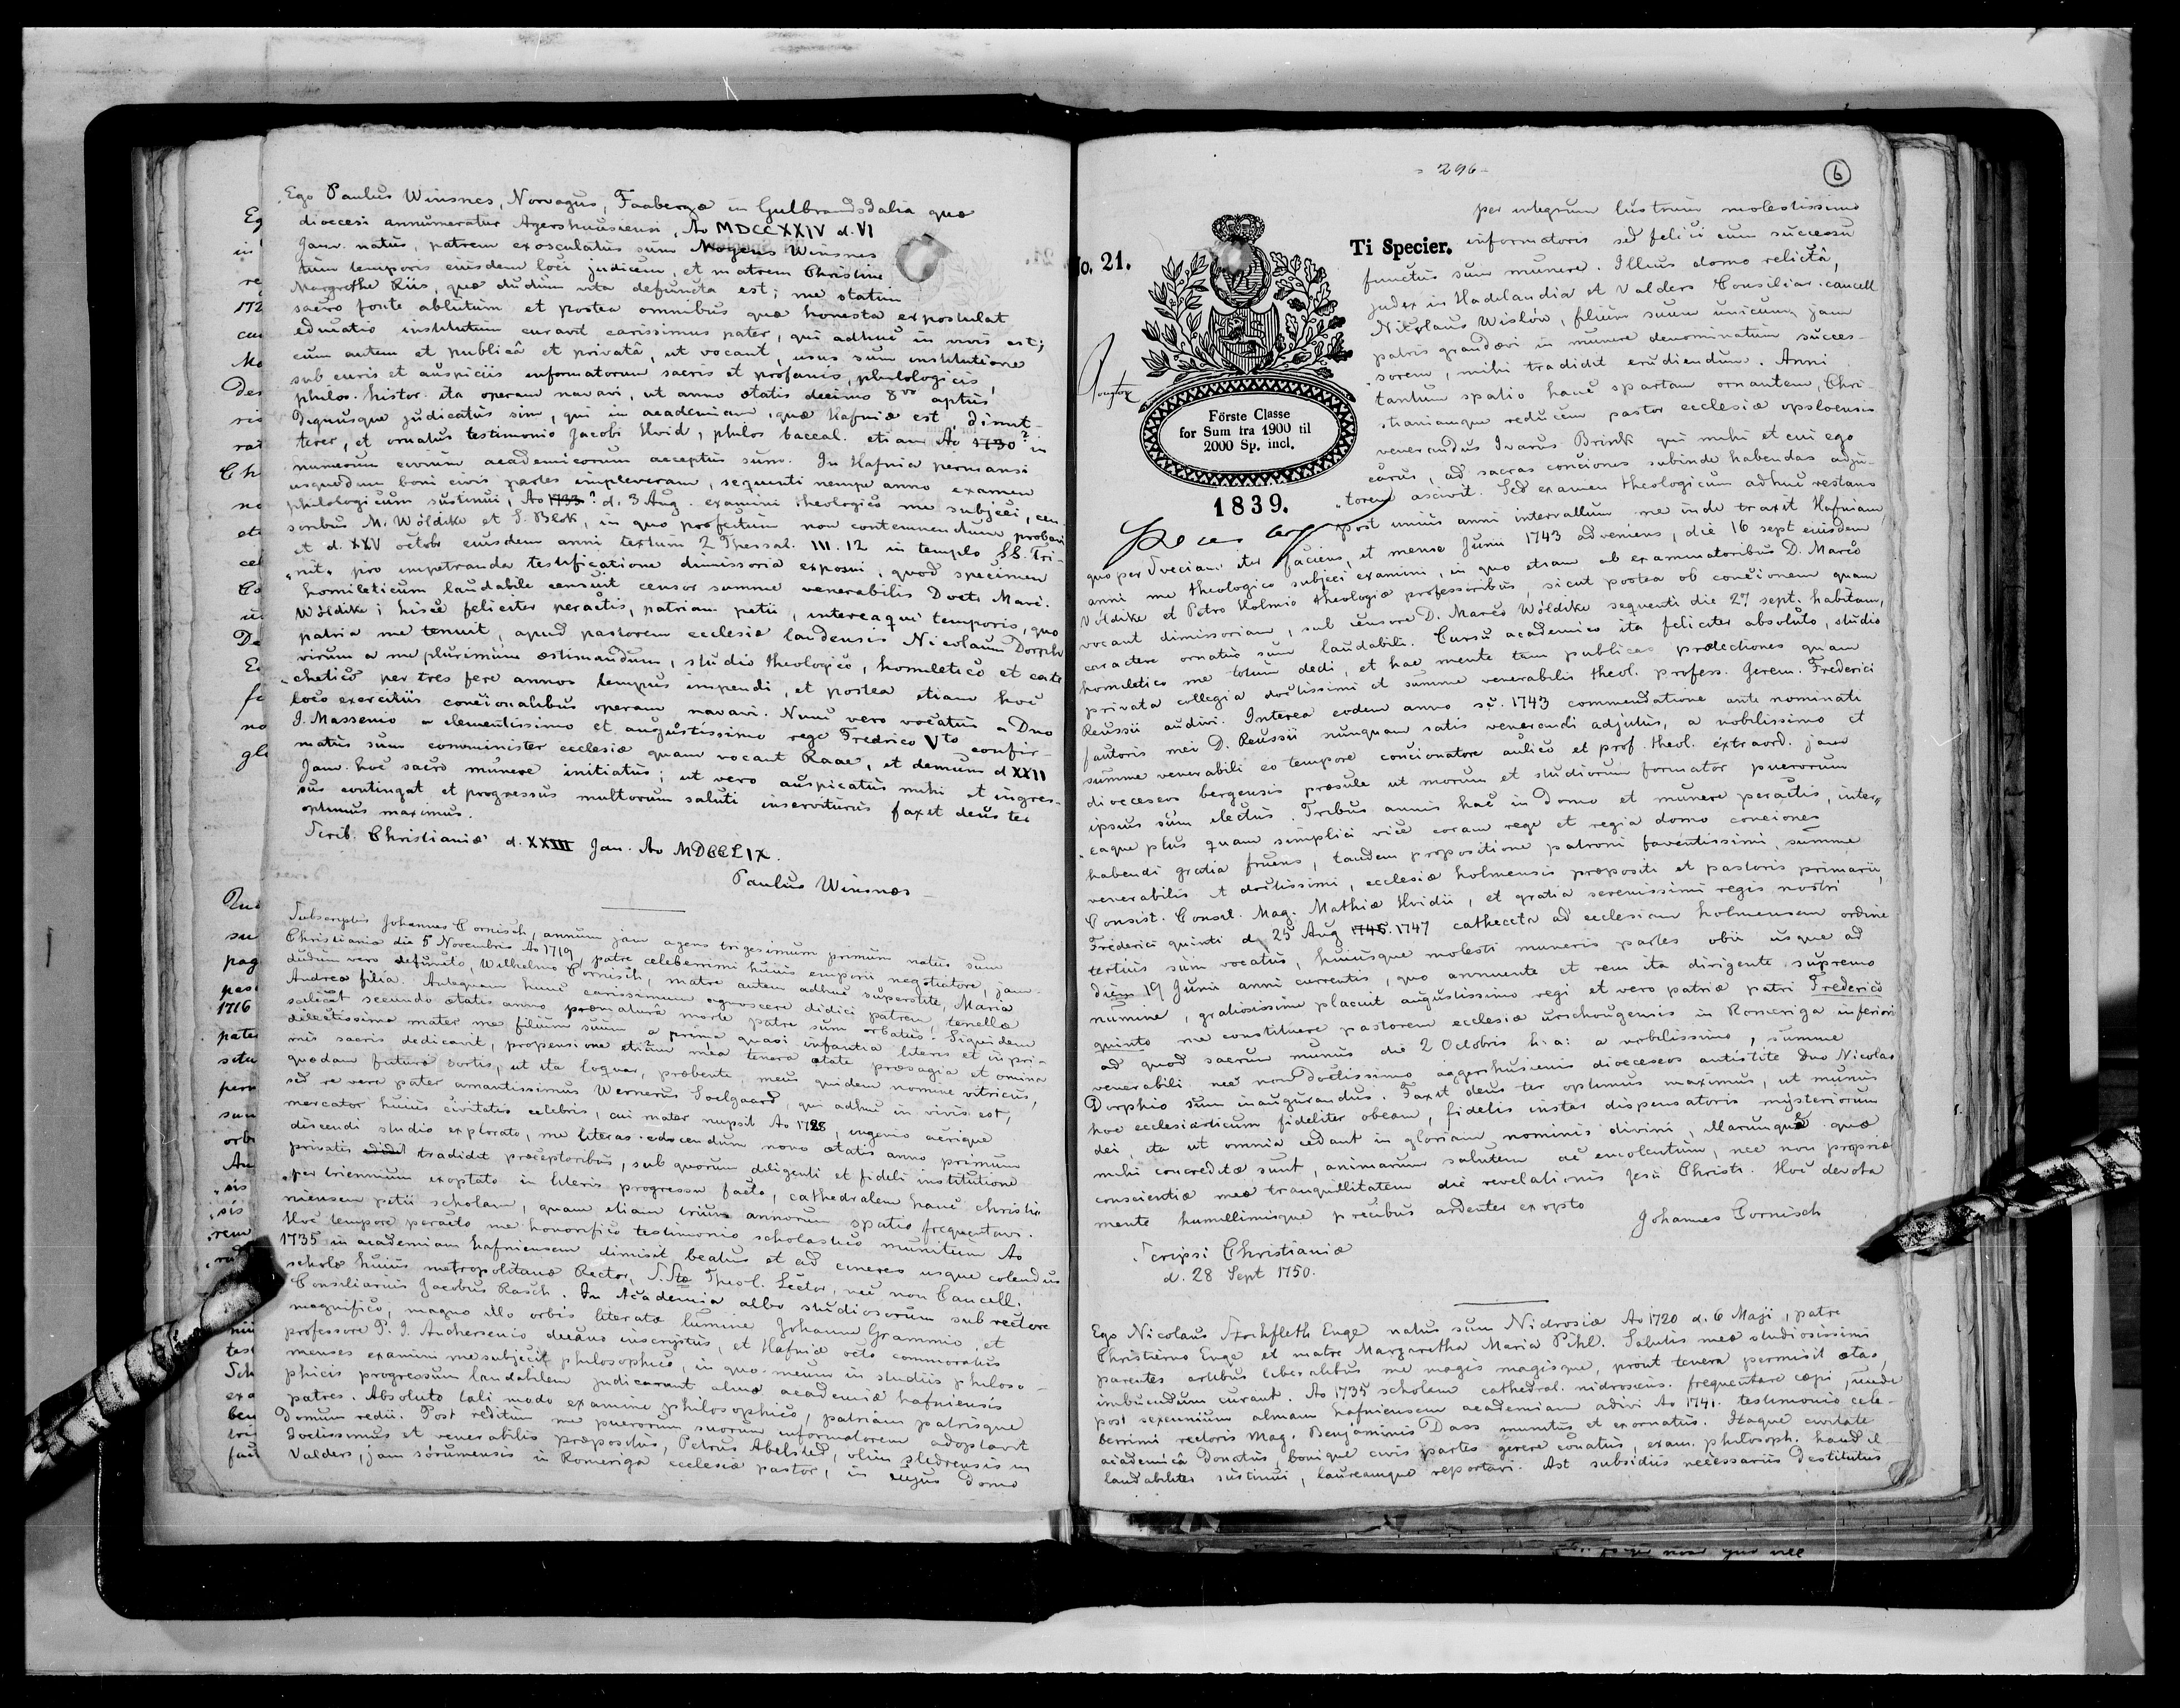 Ego Paulus Winsnes, Norvagus, Faabergæ in Gulbrandsdalia quæ
dioecesi annumeratur Agershuusiensi, Ao MDCCXXIV d. VI
Janv. natus, patrem exosculatus sum Mogens Winsnes
tum temporis eiusdem loci judicem, et matrem Christine
Margrethe Riis, quæ dudum vita defuncta est; me statim
sacro fonte ablutum et postea omnibus quæ honesta expostulat
educatio institutum curavit carissimus pater, qui adhuc in vivis est;
cum autem et publicâ et privatâ, ut vocant, usus sum institutione
sub curis et auspiciis informatorum sacris et profanis, philologicis,
philos. histor. ita operam navavi, ut anno ætatis decimo 8vo aptus
dignusque judicatus sim, qui in academiam, quæ Hafniæ est, dimit-
terer, et ornatus testimonio Jacobi Hvid, philos baccal. etiam Ao 1730? in
numerum civium academicorum acceptus sum. In Hafnia permansi
usquedum boni civis partes impleveram, sequenti nempe anno examen
philologicum sustinui, Ao 1733? d. 3 Aug. examini theologico me subjeci, cen-
soribus M. Wöldike et S. Blok, in quo profectum non contemnendum probavi
et d. XXV octobr eiusdem anni textum 2 Thessal. III. 12 in templo SS. Tri-
„nit„ pro impetranda testificatione dimissoria exposui, quod specimen
homileticum laudabile censuit censor summe venerabilis Doct. Marc.
Wöldike; hisce feliciter peractis, patriam petii, intereaqui temporis, quo
patria me tenuit, apud pastorem ecclesiæ laudensis Nicolaum Dorph
virum a me plurimum æstimandum, studio theologico, homiletico et cate
„chetico per tres fere annos tempus impendi, et postea etiam hoc
loco exercitiis concionalibus operam navavi. Nunc vero vocatus a Dno
J. Massenio a clementissimo et augustissimo rege Fredrico Vto confir-
matus sum comminister ecclesiæ quam vocant Raae, et demum d XXII
Janv. hoc sacro munere initiatus; ut vero auspicatus mihi et ingres-
sus contingat et progressus multorum saluti inserviturus faxit deus ter
optimus maximus.
Scrib. Christianiæ d. XXIII Jan. Ao MDCCLIX.
Paulus Winsnes
Subscriptus Johannes Cornisch, annum jam agens trigesimum primum natus sum
Christianiæ die 5 Novembris Ao 1719, patre celeberrimi huius emporii negotiatore, jam
dudum vero defuncto, Wilhelmo Cornisch, matre autem adhuc superstite, Maria
Andrea filia. Antequam hunc carissimum agnoscere didici patrem, tenellæ
scilicet secundo ætatis anno præmatura morte patre sum orbatus. Siquidem
dilectissima mater me filium suum a prima quasi infantia literis et inpri-
mis sacris dedicavit, propensione etiam mea tenera ætate præsagia et omina
quædam futuræ sortis, ut ita loquar, præbente, meus quidem nomine vitricus,
sed re vera pater amantissimus Wernerus Soelgaard, qui adhuc in vivis est,
mercator huius civitatis celebris, cui mater nupsit Ao 1728, ingenio acrique
discendi studio explorato, me literas edocendum nono ætatis anno primum
privatis tradidit præceptoribus, sub quorum diligenti et fideli institutione
per triennium exoptato in literis progressu facto, cathedralem hanc christia
niensem petii scholam, quam etiam trium annorum spatio frequentavi.
Hoc tempore peracto me honorifico testimonio scholastico munitum Ao
1735 in academiam hafniensem dimisit beatus et ad cineres usque colendus
scholæ huius metropolitanæ Rector, S.Stæ Theol. Lector, nec non Cancell.
Consiliarius Jacobus Rasch. In Academia albo studiosorum sub rectore
magnifico, magno illo orbis literatæ lumine Johanne Grammio, et
professore P. J. Anchersenio decano inscriptus, et Hafniæ octo commoratus
menses examini me subjecit philosophico, in quo meum in studiis philoso-
phicis progressum laudabilem judicarunt almæ academiæ hafniensis
patres. Absoluto tali modo examine philosophico, patriam patrisque
domum redii. Post reditum me puerorum suorum informatorem adoptavit
doctissimus et venerabilis præpositus, Petrus Abelsted, olim slidrensis in
Valders, jam sörumensis in Romeriga ecclesiæ pastor, in cujus domo
- 296 -
6
No. 21.
Ti Specier.
Förste Classe
for Sum fra 1900 til
2000 Sp. incl.
1839.
per integrum lustrum molestissimo
informatoris sed felici cum successu
functus sum munere. Illius domo relictâ,
judex in Hadelandia et Valders Consiliar. cancell
Nikolaus Wislöw, filium suum unicum, jam
patris grandævi in munere denominatum succes-
„sorem, mihi tradidit erudiendum. Anni
tantum spatio hanc spartam ornantem, Chri-
stianiamque reducem pastor ecclesiæ opsloensis
venerandus Ivarus Brink qui mihi et cui ego
carus, ad sacras conciones subinde habendas adju-
„torem ascivit. Sed examen theologicum adhuc restans
post unius anni intervallum me inde traxit Hafniam,
quo per Sveciam iter faciens, et mense Junii 1743 adveniens, die 16 sept eiusdem
anni me theologico subjeci examini, in quo etiam ab examinatoribus D. Marco
Völdike et Petro Holmio theologiæ professoribus, sicut postea ob concionem quam
vocant dimissoriam, sub censore D. Marco Wöldike sequenti die 27 sept. habitam,
caractere ornatus sum laudabili. Cursu academico ita feliciter absoluto, studio
homiletico me totum dedi, et hac mente tam publicas prælectiones quam
privata collegia doctissimi et summe venerabilis theol. profess. Gerem. Frederici
Reussii audivi. Interea eodem anno sc. 1743 commendatione ante nominati
fautoris mei D. Reussii nunquam satis venerandi adjutus, a nobilissimo et
summe venerabili eo tempore concionatore aulico et prof. theol. extraord. jam
dioeceseos bergensis præsule ut morum et studiorum formator puerorum
ipsius sum electus. Tribus annis hac in domo et munere peractis, inter„
„eaque plus quam simplici vice coram rege et regia domo conciones
habendi gratia fruens, tandem propositione patroni faventissimi, summe
venerabilis et doctissimi, ecclesiæ holmensis præpositi et pastoris primarii,
Consist. Consil. Mag. Mathiæ Hvidii, et gratia serenissimi regis nostri
Frederici quinti d. 25 Aug 1746. 1747 catheceta ad ecclesiam holmensem ordine
tertius sum vocatus, huiusque molesti muneris partes obii usque ad
diem 19 Junii anni currentis, quo annuente et rem ita dirigente supremo
numine, gratiosissime placuit augustissimo regi et vero patriæ patri Frederico
quinto me constituere pastorem ecclesiæ urschougensis in Romeriga inferiori
ad quod sacrum munus die 2 Octobris h: a: a nobilissimo, summe
venerabili nec non doctissimo aggershusiensis dioeceseos antistite Dno Nicolao
Dorphio sum inaugurandus. Faxit deus ter optimus maximus, ut munus
hoc ecclesiasticum fideliter obeam, fidelis instar dispensatoris mysteriorum
dei, ita ut omnia cedant in gloriam nominis divini, illarumque quæ
mihi concreditæ sunt, animarum salutem ac emolentum, nec non propriæ
conscientiæ meæ tranquillitatem die revelationis Jesu Christi. Hoc devota
mente humillimisque precibus ardenter exopto
Johannes Cornisch
Scripsi Christianiæ
d. 28 Sept 1750.
Ego Nicolaus Storkfleth Enge natus sum Nidrosiæ Ao 1720 d. 6 Maji, patre
Christierno Enge et matre Margaretha Maria Pihl. Salutis meæ studiosissimi
parentes artibus liberalibus me magis magisque, prout tenera permisit ætas,
imbuendum curant. Ao 1735 scholam cathedral. nidrosiens. frequentare cæpi, unde
post sexennium almam hafniensem academiam adivi Ao 1741. testimonio cele-
berrimi rectoris Mag. Benjaminis Dass munitus et exornatus. Itaque civitate
academicâ donatus, bonique civis partes gerere conatus, exam. philosoph. haud il
laudabiliter sustinui, laureamque reportavi. Ast subsidiis necessariis destitutus